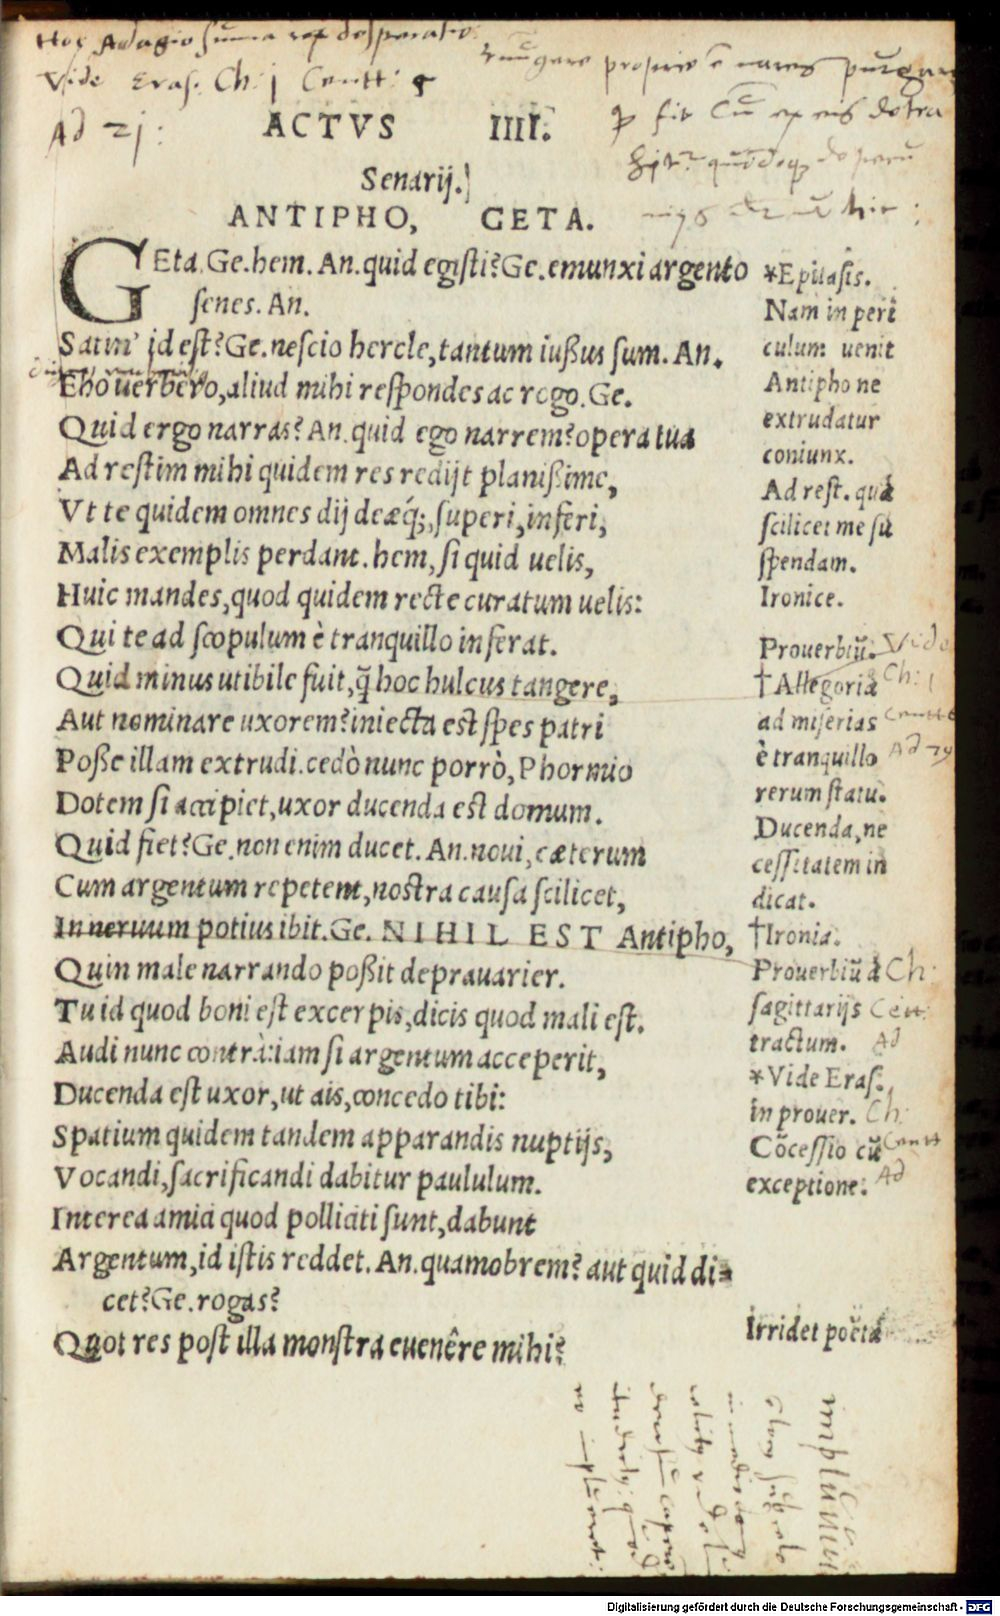 Hoc Adagio summa rerum desperatio
Vide Eras. Ch: j Centt: 5
Ad 2j:
ACTVS IIII.
Senarij.
ANTIPHO, GETA.
GEta. Ge. hem. An. quid egisti? Ge. emunxi argento
senes. An.
Satin' id est? Ge. nescio hercle, tantum iußus sum. An.
Eho uerbero, aliud mihi respondes ac rogo. Ge.
Quid ergo narras? An. quid ego narrem? opera tua
Ad restim mihi quidem res redijt planißime,
Vt te quidem omnes dij deæq́;, superi, inferi,
Malis exemplis perdant. hem, si quid uelis,
Huic mandes, quod quidem recte curatum uelis:
Qui te ad scopulum è tranquillo inferat.
Quid minus utibile fuit, q̃ hoc hulcus tangere,
Aut nominare uxorem? iniecta est spes patri
Poße illam extrudi. cedò nunc porrò, Phormio
Dotem si accipiet, uxor ducenda est domum.
Quid fiet? Ge. non enim ducet. An. noui, cæterum
Cum argentum repetent, nostra causa scilicet,
In neruum potius ibit. Ge. NIHIL EST Antipho,
Quin male narrando poßit deprauarier.
Tu id quod boni est excerpis, dicis quod mali est.
Audi nunc contrà: iam si argentum acceperit,
Ducenda est uxor, ut ais, concedo tibi:
Spatium quidem tandem apparandis nuptijs,
Vocandi, sacrificandi dabitur paululum.
Interea amici quod polliciti sunt, dabunt
Argentum, id istis reddet. An. quamobrem? aut quid di=
cet? Ge. rogas?
Quot res post illa monstra euenêre mihi?
*Epitasis.
Nam in peri
culum uenit
Antipho ne
extrudatur
coniunx.
Ad rest. qua
scilicet me su
spendam.
Ironice.
Prouerbiũ. Vide
†Allegoria Ch: j
ad miserias Centt
è tranquillo Ad 29
rerum statu.
Ducenda, ne
cessitatem in
dicat.
†Ironia.
Prouerbiũ à Ch:
sagittarijs Cen:
tractum. Ad
*Vide Eras.
in prouer. Ch:
Cõcessio cũ Centt
exceptione: Ad
Irridet poëta
Digitalisierung gefördert durch die Deutsche Forschungsgemeinschaft - DFG